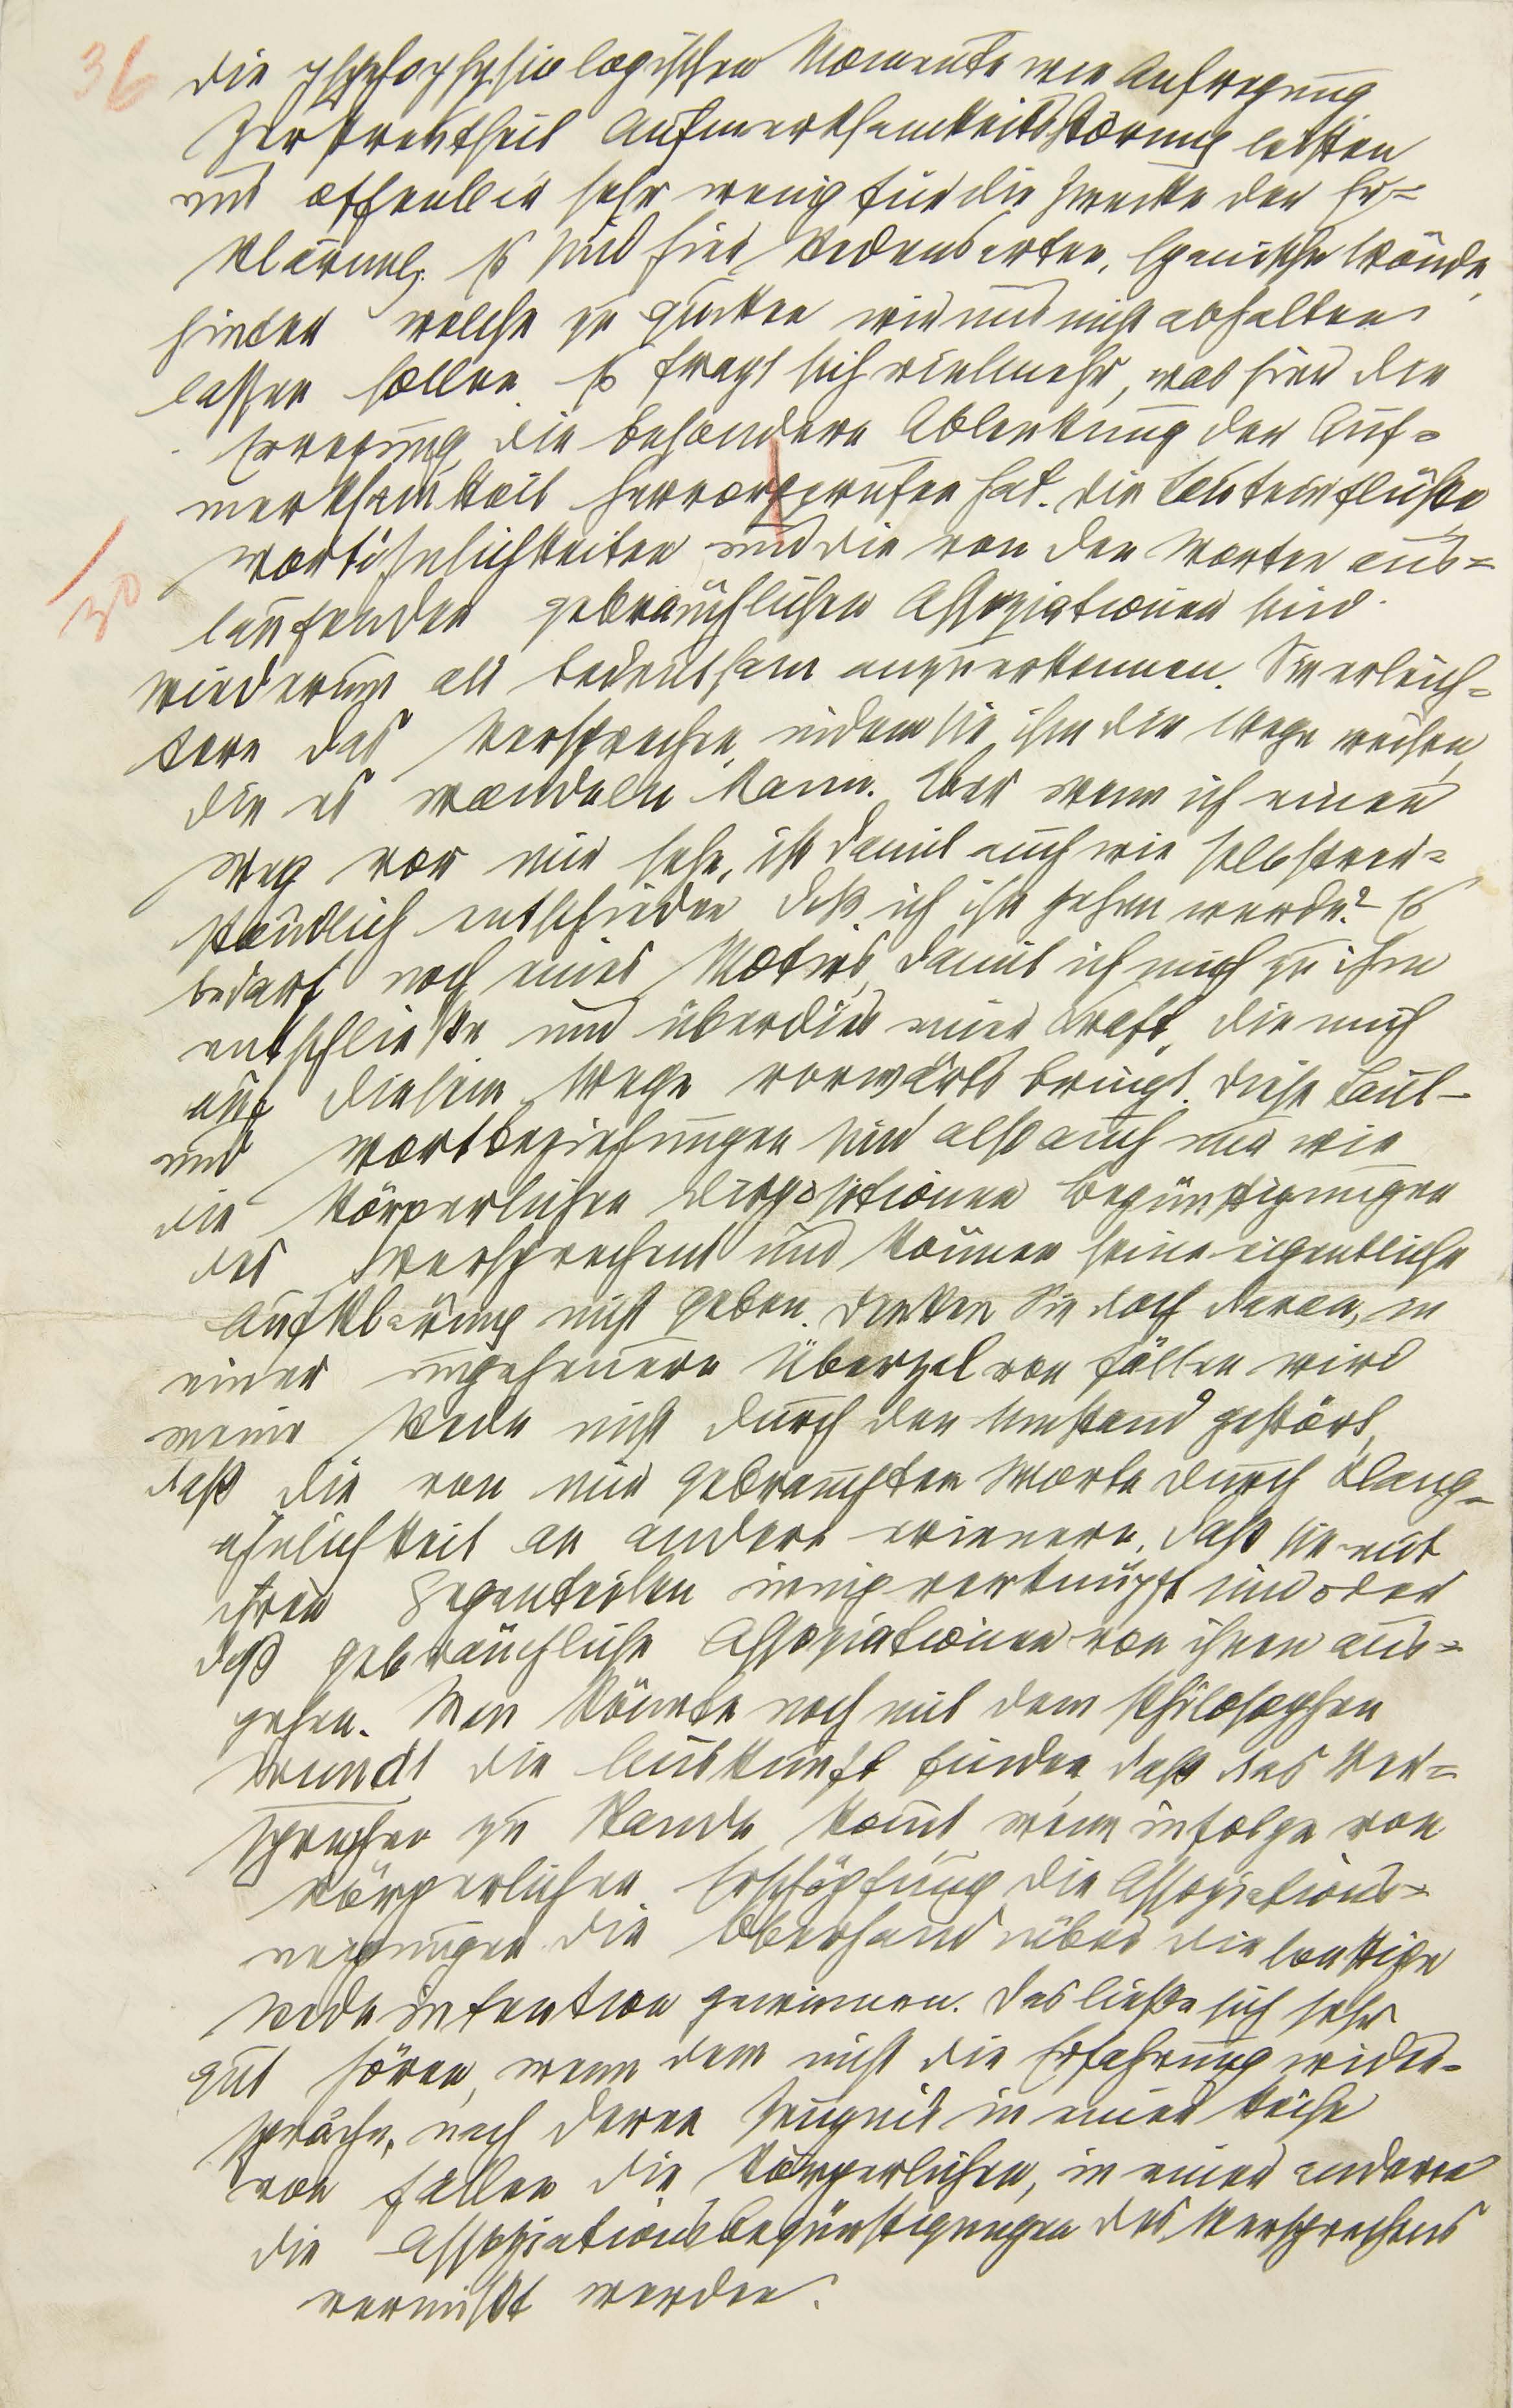 36
die psychophysiologischen Momente wie Aufregung
Zerstreutheit Aufmerksamkeitsstörung leisten
uns offenbar sehr wenig für die Zwecke der Er-
klärung. Es sind hier Redensarten, spanische Wände,
hinter welche zu gucken wir uns nicht abhalten
lassen sollen. Es fragt sich vielmehr, was hier die
Erregung, die besondere Ablenkung der Auf-
merksamkeit hervorgerufen hat. Die Lauteinflüsse,
Wortähnlichkeiten und die von den Worten aus-
30
laufenden gebräuchlichen Assoziationen sind
wiederum als bedeutsam anzuerkennen. Sie erleich-
tern das Versprechen, indem sie ihm die Wege weisen,
die es wandeln kann. Aber wenn ich einen
Weg vor mir sehe, ist damit auch wie selbstver-
ständlich entschieden daß ich ihn gehen werde? Es
bedarf noch eines Motivs, damit ich mich zu ihm
entschließe und überdies einer Kraft, die mich
auf diesem Wege vorwärts bringt. Diese Laut-
und Wortbeziehungen sind also auch nur wie
die körperlichen Dispositionen Begünstigungen
des Versprechens und können seine eigentliche
Aufklärung nicht geben. Denken Sie doch daran, in
einer ungeheuren Überzal von Fällen wird
meine Rede nicht durch den Umstand gestört,
daß die von mir gebrauchten Worte durch Klang-
ähnlichkeit an andere erinnern, daß sie mit
ihren Gegenteilen innig verknüpft sind oder
daß gebräuchliche Assoziationen von ihnen aus-
gehen. Man könnte noch mit dem Philosophen
Wundt die Auskunft finden, daß das Ver-
sprechen zu Stande komt, wenn infolge von
körperlicher Erschöpfung die Assoziations-
neigungen die Oberhand über die sonstige
Redeintention gewinnen. Das ließe sich sehr
gut hören, wenn dem nicht die Erfahrung wider-
spräche, nach deren Zeugnis in einer Reihe
von Fällen die körperlichen, in einer anderen
die Assoziationsbegünstigungen des Versprechens
vermißt werden.